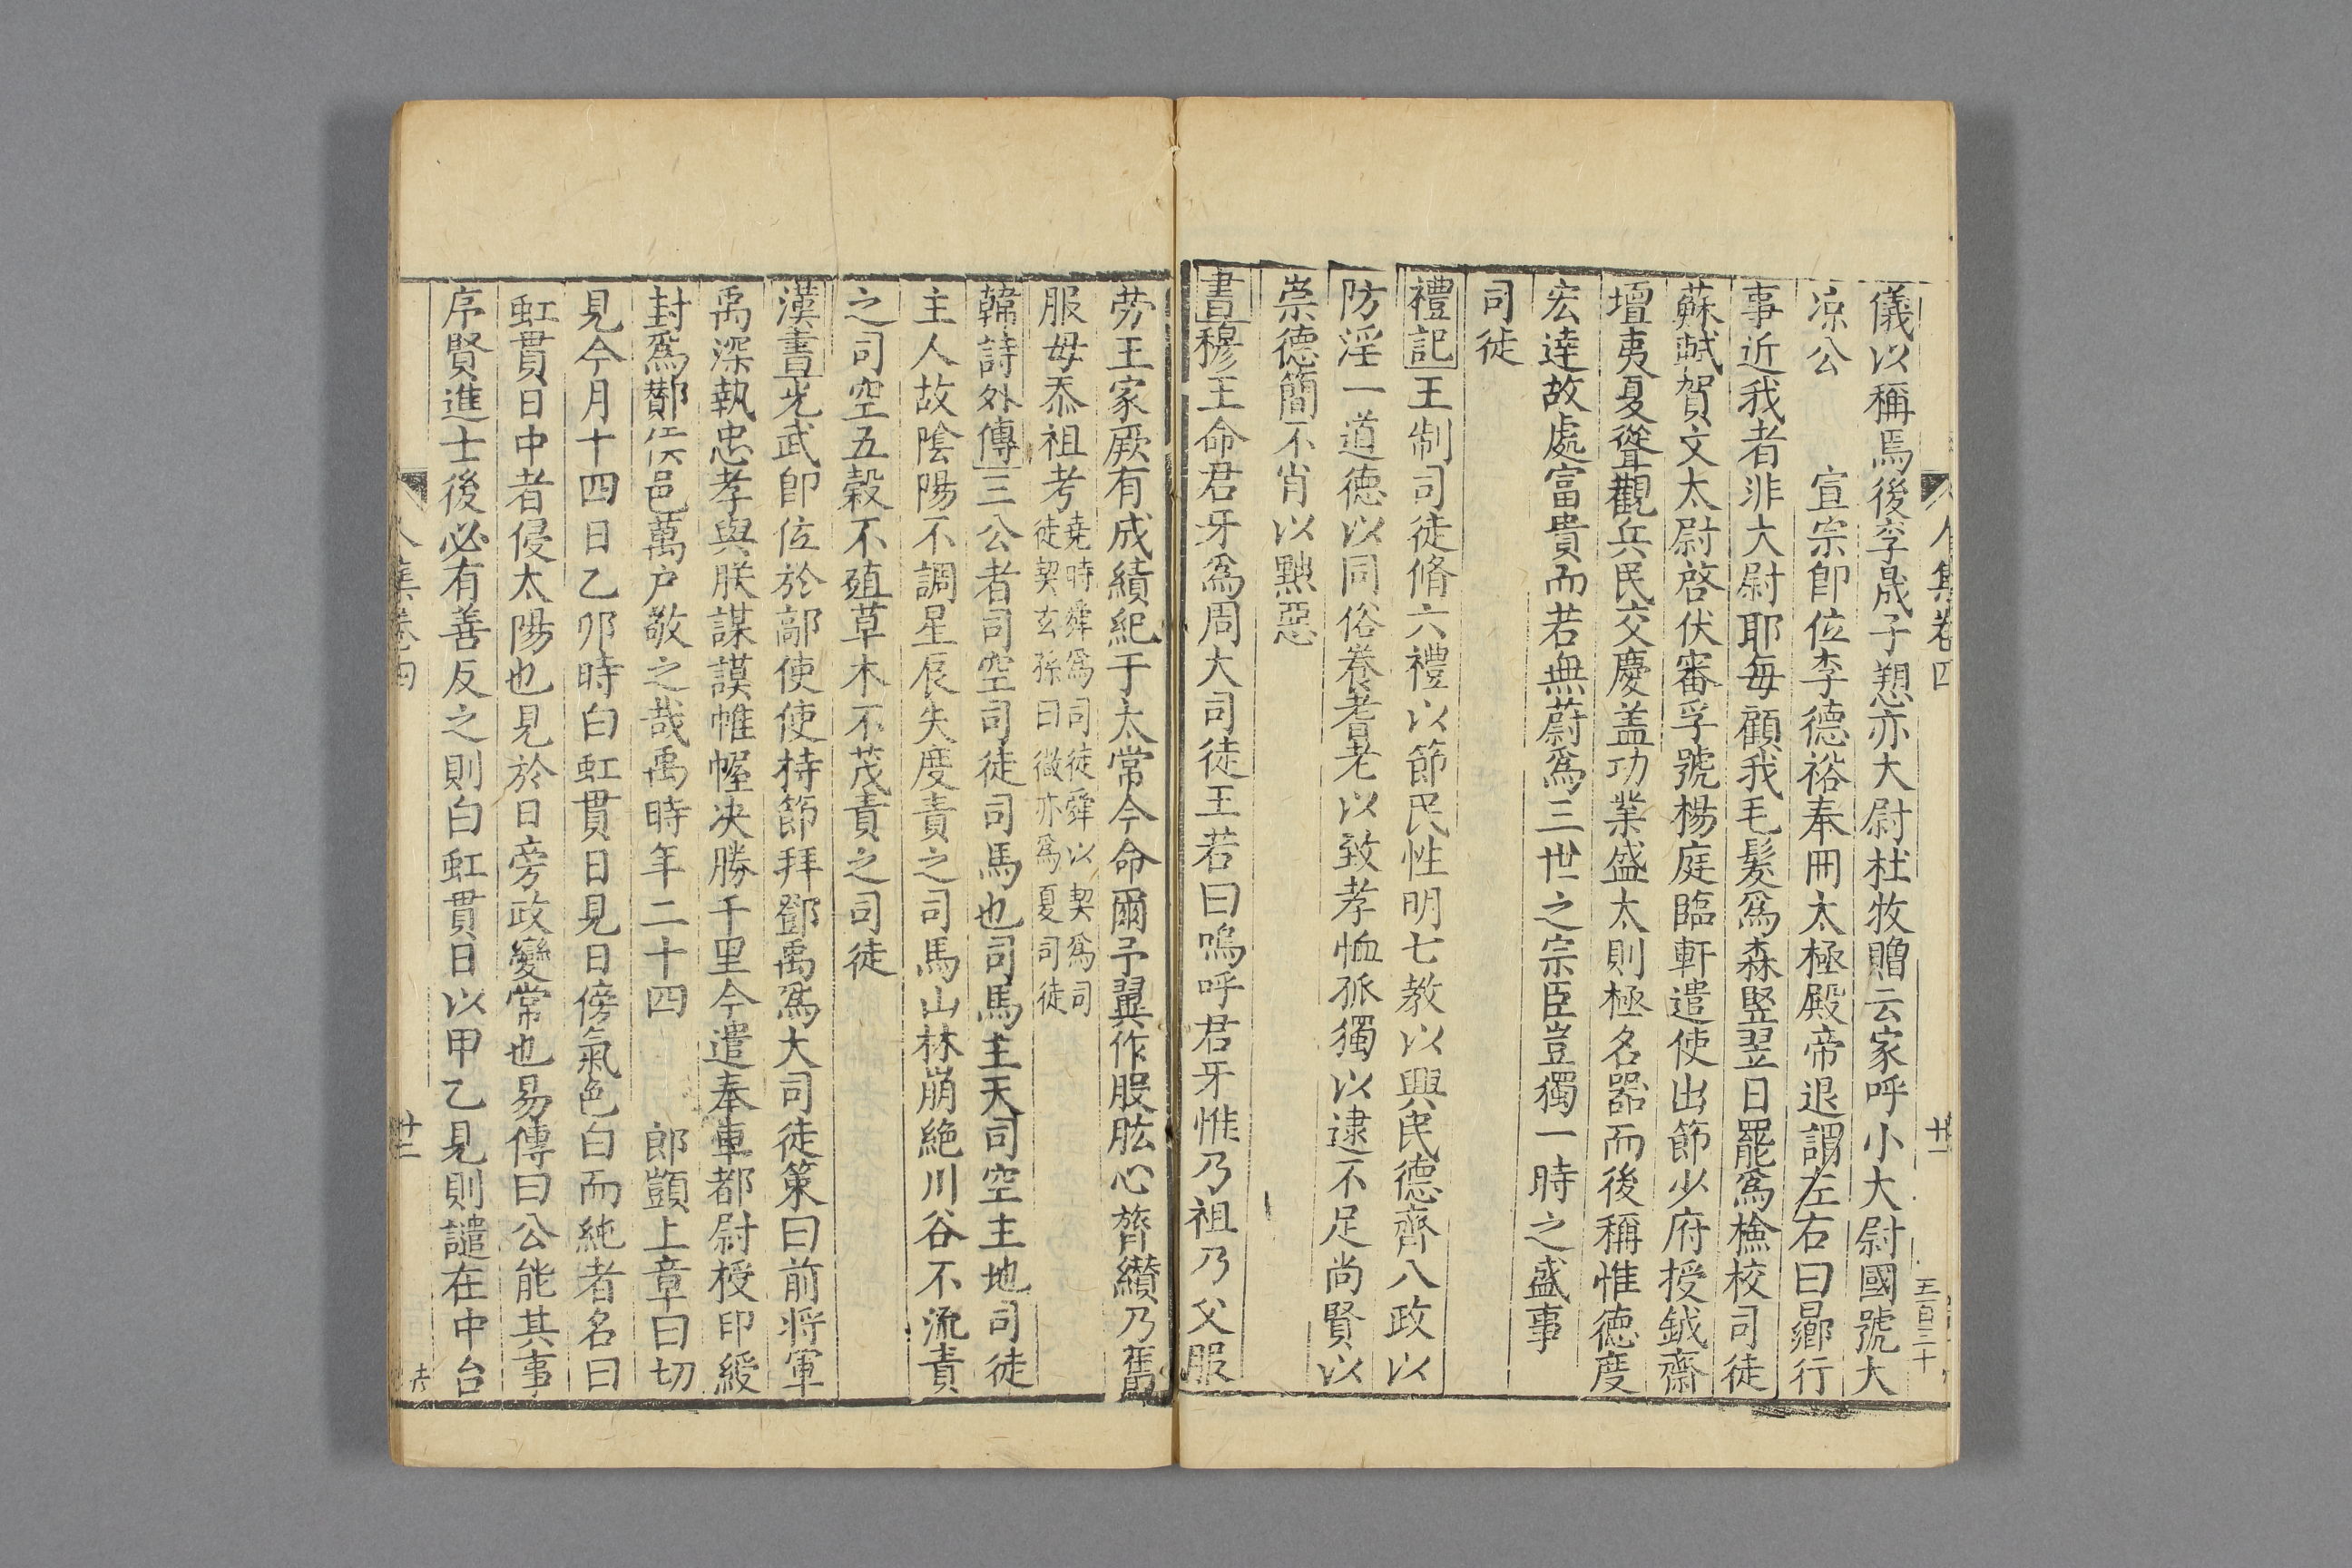 人集卷四 廿一 三百三十
儀以稱焉後李晟子愬亦大尉杜牧贈云家呼小大尉國號大
凉公 宣宗卽位李德裕奉冊太極殿帝退謂左右曰曏行
事近我者非大尉耶每顧我毛髮爲森竪翌日罷爲檢校司徒
蘇軾賀文太尉啓伏審孚號楊庭臨軒遣使出節少府授鉞齋
壇夷夏聳觀兵民交慶盖功業盛太則極名器而後稱惟德度
宏達故處富貴而若無蔚爲三世之宗臣豈獨一時之盛事
司徒
禮記王制司徒脩六禮以節民性明七教以興民德齊八政以
防淫一道德以同俗養耆老以致孝恤孤獨以逮不足尚賢以
崇德簡不肖以黜惡
書穆王命君牙爲周大司徒王若曰嗚呼君牙惟乃祖乃父服
勞王家厥有成績紀于太常今命爾予翼作股肱心膂纉乃舊
服毋忝祖考堯時舜爲司徒舜以契爲司
徒契玄孫曰微亦爲夏司徒
韓詩外傳三公者司空司徒司馬也司馬主天司空主地司徒
主人故陰陽不調星辰失度責之司馬山林崩絶川谷不流責
之司空五穀不殖草木不茂責之司徒
漢書光武卽位於鄗使使持節拜鄧禹爲大司徒策曰前將軍
禹深執忠孝與朕謀謨帷幄决勝千里今遣奉車都尉授印綬
封爲酇侯邑萬户敬之哉禹時年二十四 郎顗上章曰切
見今月十四日乙夘時白虹貫日見日傍氣色白而純者名曰
虹貫日中者侵太陽也見於日旁政變常也易傳曰公能其事
序賢進士後必有善反之則白虹貫日以甲乙見則譴在中台
人集卷四 廿二